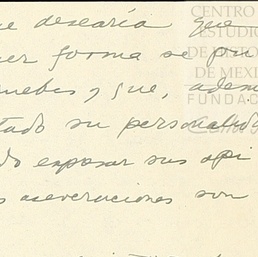 e desearía que
er forma se pu
uebas y que, adem
tado su personalid
do exponer sus opi
s aseveraciones son
CENTRO
ESTUDIO
DE HISTOR
DE MEXI
FUNDAC